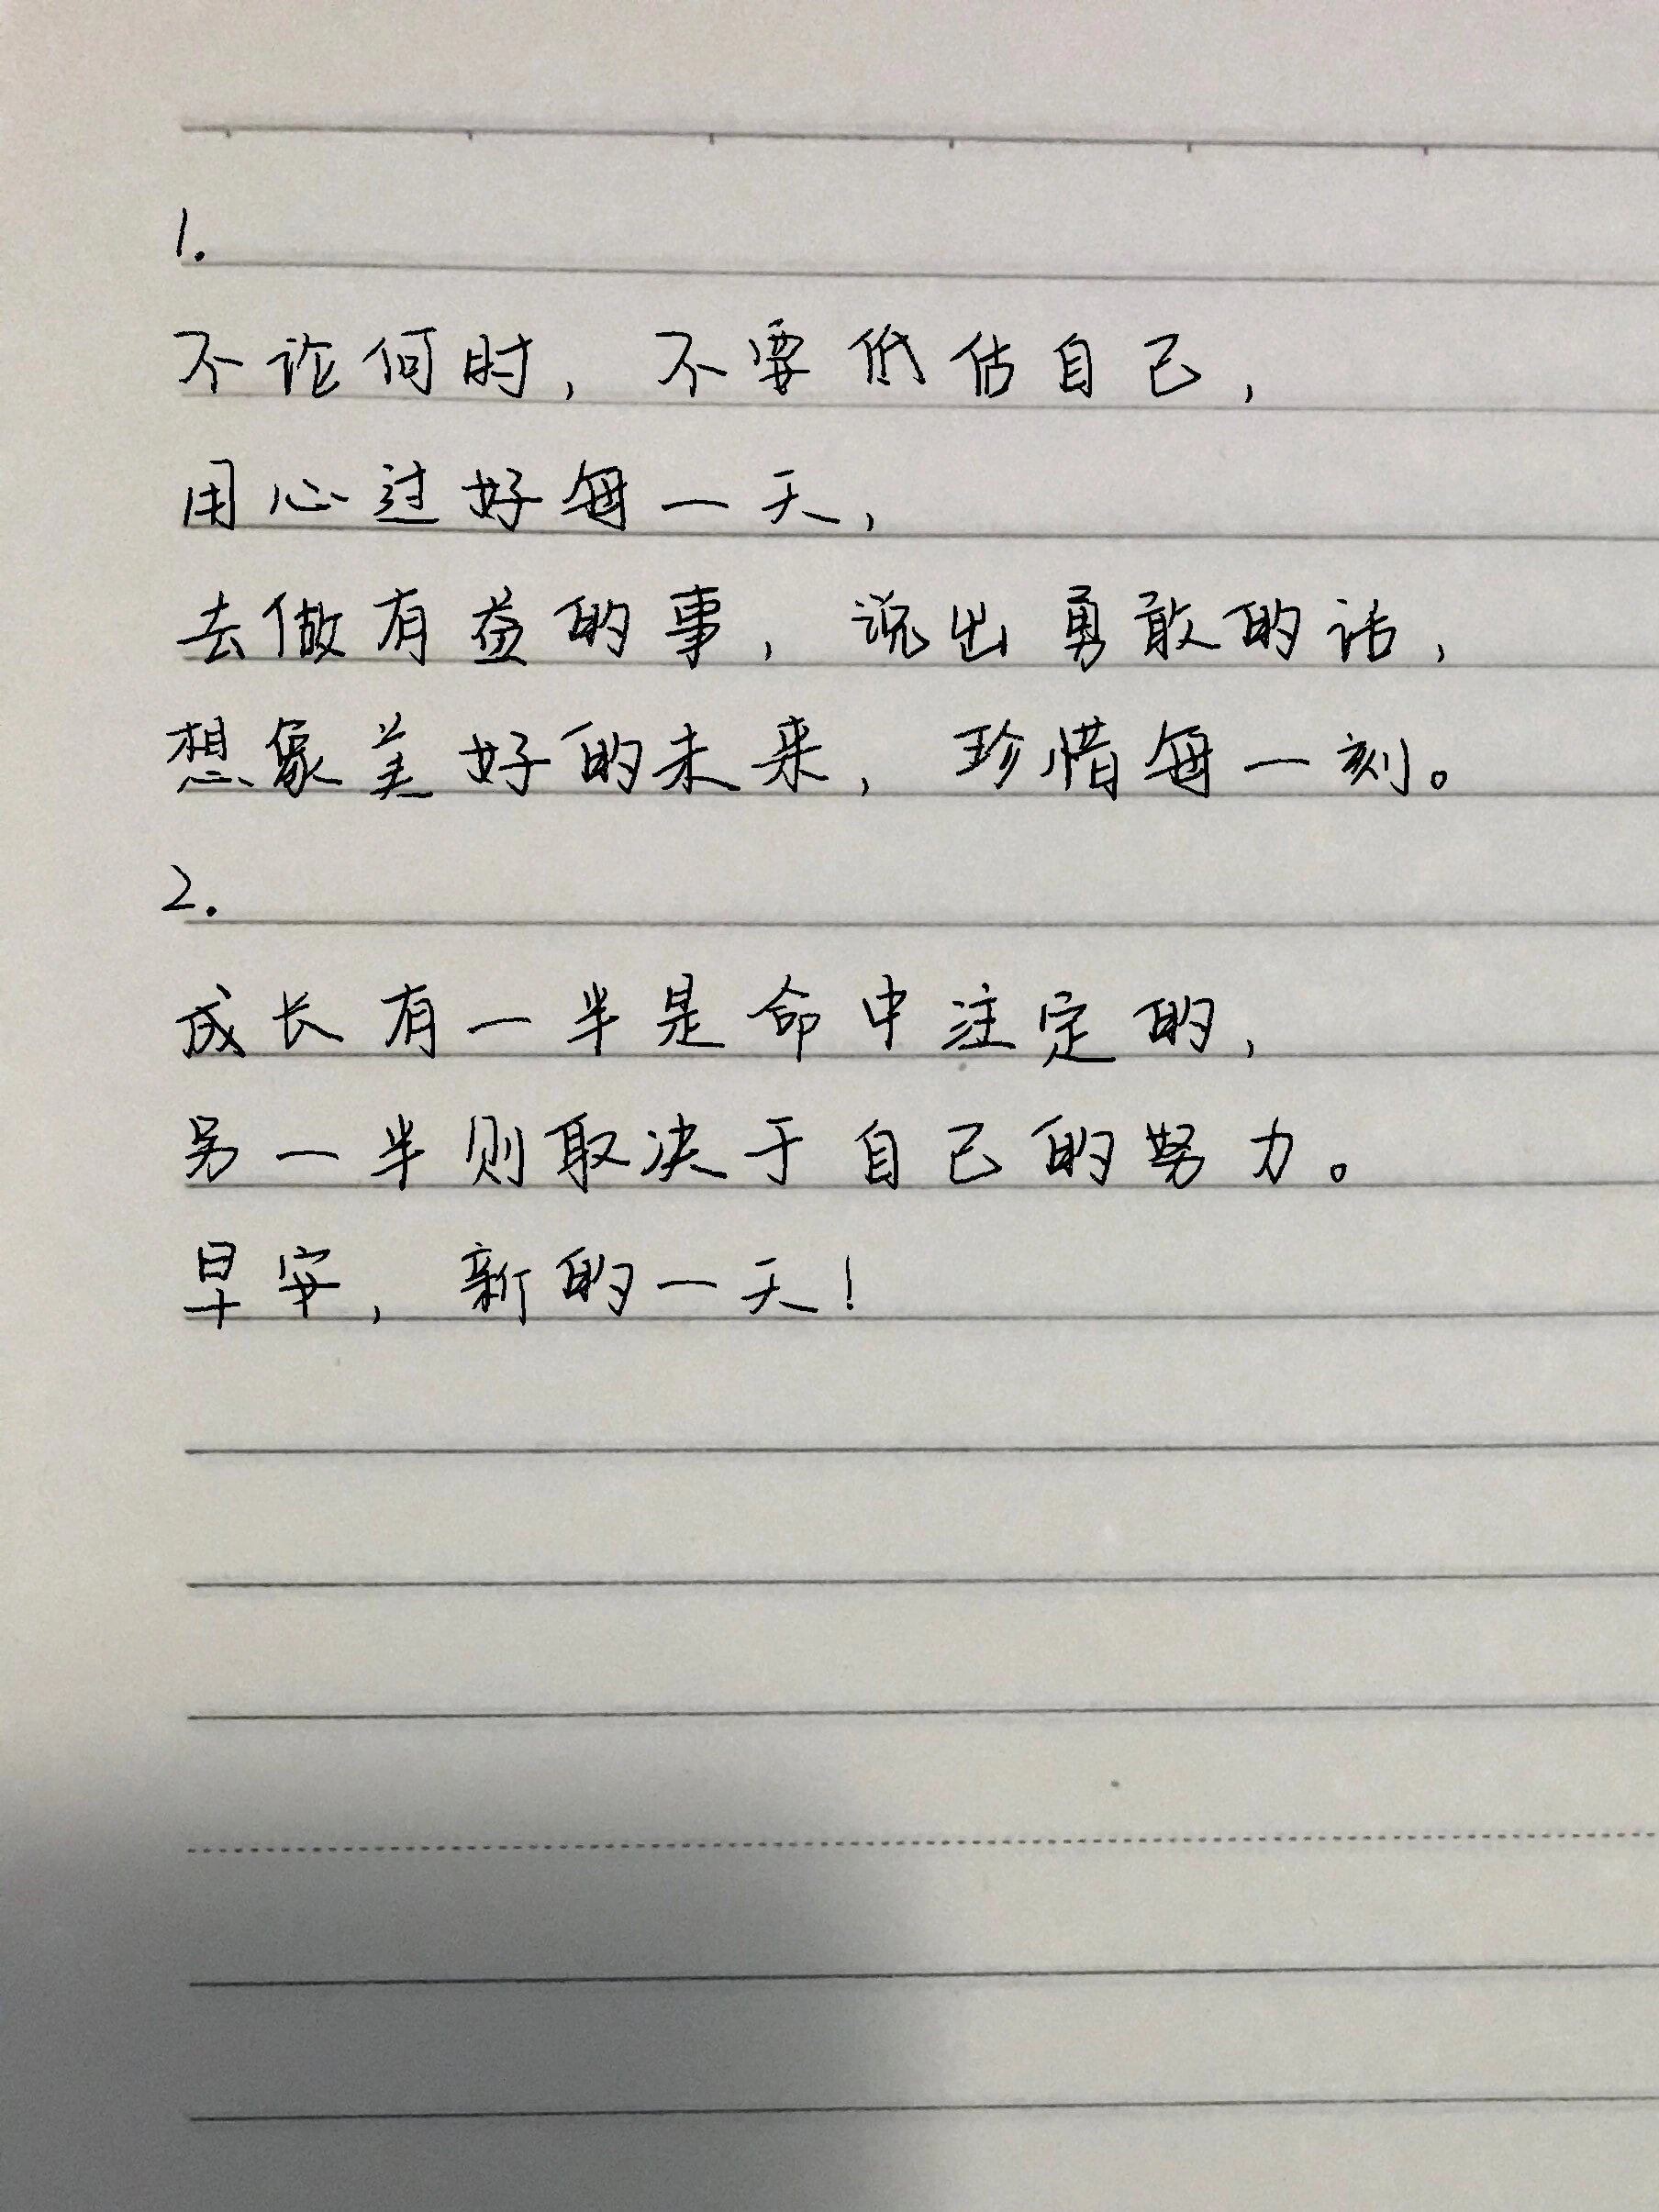 1.
不论何时，不要低估自己，
用心过好每一天，
去做有益的事，说出勇敢的话，
想象美好的未来，珍惜每一刻。
2.
成长有一半是命中注定的，
另一半则取决于自己的努力。
早安，新的一天！